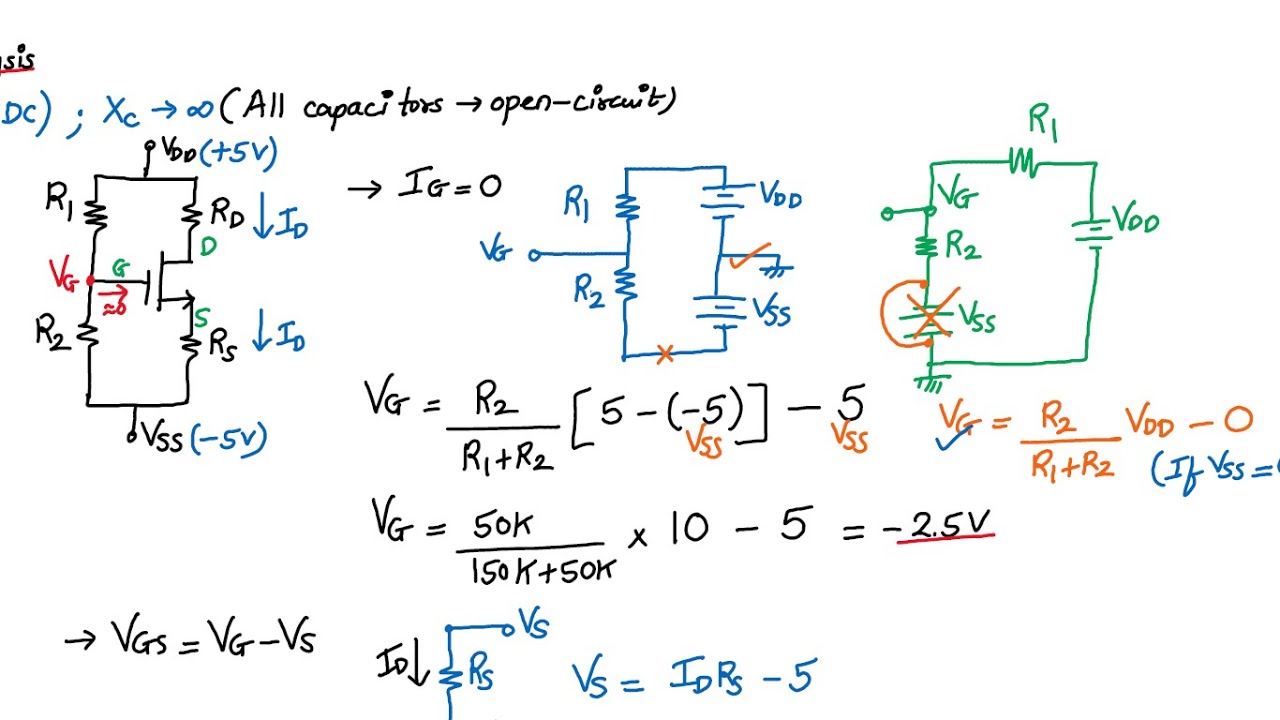 DC) ; XC → ∞ (All capacitors → open-circuit)
VDD (+5V)
R1
RD
↓ ID
D
VG
G
≈0
R2
S
RS
↓ ID
VSS (-5V)
→ IG = 0
R1
VDD
VG
R2
VSS
R1
VG
VDD
R2
VSS
VG = R2 / (R1+R2) [5 - (-5)] - 5
VSS
VSS
VG = R2 / (R1+R2) VDD - 0
(If VSS =
VG = 50K / (150K+50K) × 10 - 5 = -2.5V
→ VGS = VG - VS
VS
ID ↓
RS
VS = ID RS - 5